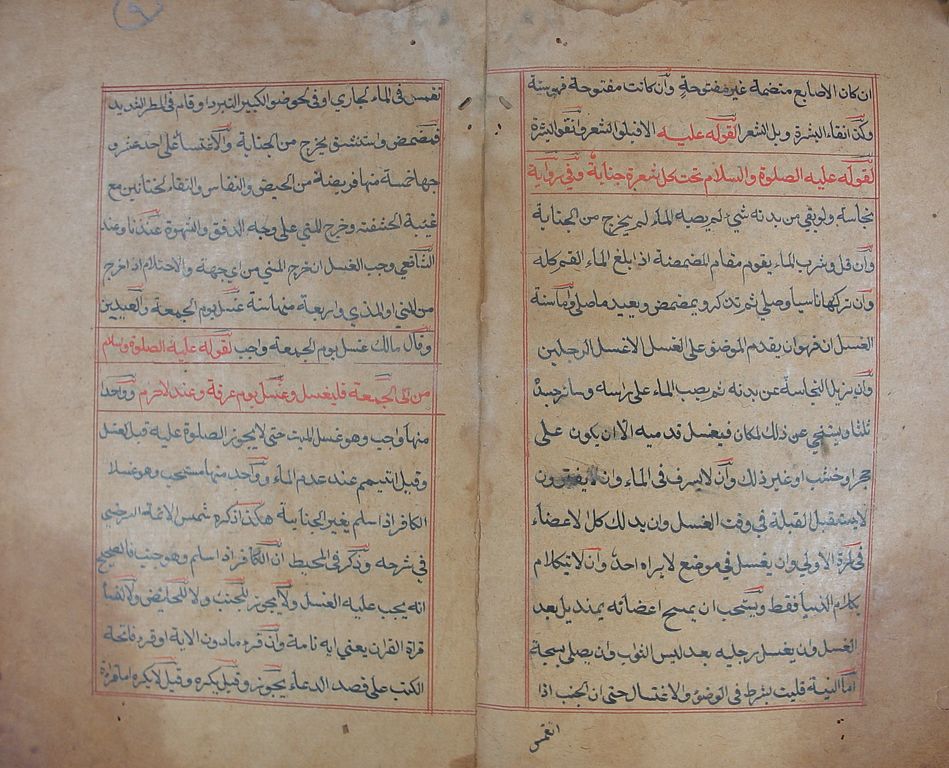 ان كان الاصابع منضمة غير مفتوحةٍ وان كانت مفتوحة فهو سنة
وكذا انقاء البشرة وبل الشعر لقوله عليه الا فبلو الشعر وانقو البشرة
لقوله عليه الصلوة والسلام تحت كل شعرة جنابةٌ وفي رواية
نجاسة ولو بقي من بدنه شئ لم يصبه الماء لم يخرج من الجنابة
وان قل وشرب الماء يقوم مقام المضمضة اذا بلغ الماء الفم كله
وان تركها ناسيا وصلي ثم تذكر ويمضمض ويعيد ما صلي واما سنة
الغسل ان فهوان يقدم الموضؤ على الغسل الا غسل الرجلين
وان يزيل النجاسة عن بدنه ثم يصب الماء على راسه وسائر جسده
ثلثا ويتنحي عن ذلك المكان فيغسل قدميه الا ان يكون على
حجر او خشب او غير ذلك وان لا يسرف في الماء وان لا يقترون
لا يستقبل القبلة في وقت الغسل وان يدلك كل الاعضاء
في المرة الاولي وان يغسل في موضع لا يراه احد وان لا يتكلام
بكلام الدنيا فقط ويستحب ان يمسح اعضائه بمنديل بعد
الغسل وان يغسل رجليه بعد لبس الثواب وان يصلي بسجة
اما النية فليت بشرط في الوضوء والاغتسال حتى ان الجنب اذا
انغمس
٩
تغمس في الماء الجاري او في الحوض الكبير التبردا وقام في المطر الشديد
فمضمض واستنشق يخرج من الجنابة والاغتسا على احد عشره
جها خمسة منها فريضة من الحيض والنفاس والتقاء الختانين مع
غيبة الحشفته وخرج المني على وجه الدفق والشهوة عندنا وعند
الشافعي وجب الغسل ان خرج المني من اي جهة والاحتلام اذا خرج
من المني او المذي واربعة منها سنة غسل يوم الجمعة والعيدين
وقال مالك غسل يوم الجمعة واجب لقوله عليه الصلوة وسلم
من الجمعة فليغسل وغسل يوم عرفة وعند الاحرم وواحد
منها واجب وهو غسل الميت حتى لا يجوز الصلوة عليه قبل الغسل
وقبل التيمم عند عدم الماء وواحد منها مستحب وهو غسل
الكافر اذا اسلم بغير الجنابة هكذا ذكره شمس الائمة السرخسي
في شرحه وذكر في المحيط ان الكافر اذا اسلم وهو جنب فالصحيح
انه يجب عليه الغسل ولا يجوز للجنب ولا للحايض ولا لنفسا
قراة القران يعني اية تامة وان قره مادون الاية او قره فاتحة
الكتب على قصد الدعاء يجوز وقيل يكره وقيل لا يكره اما قراة